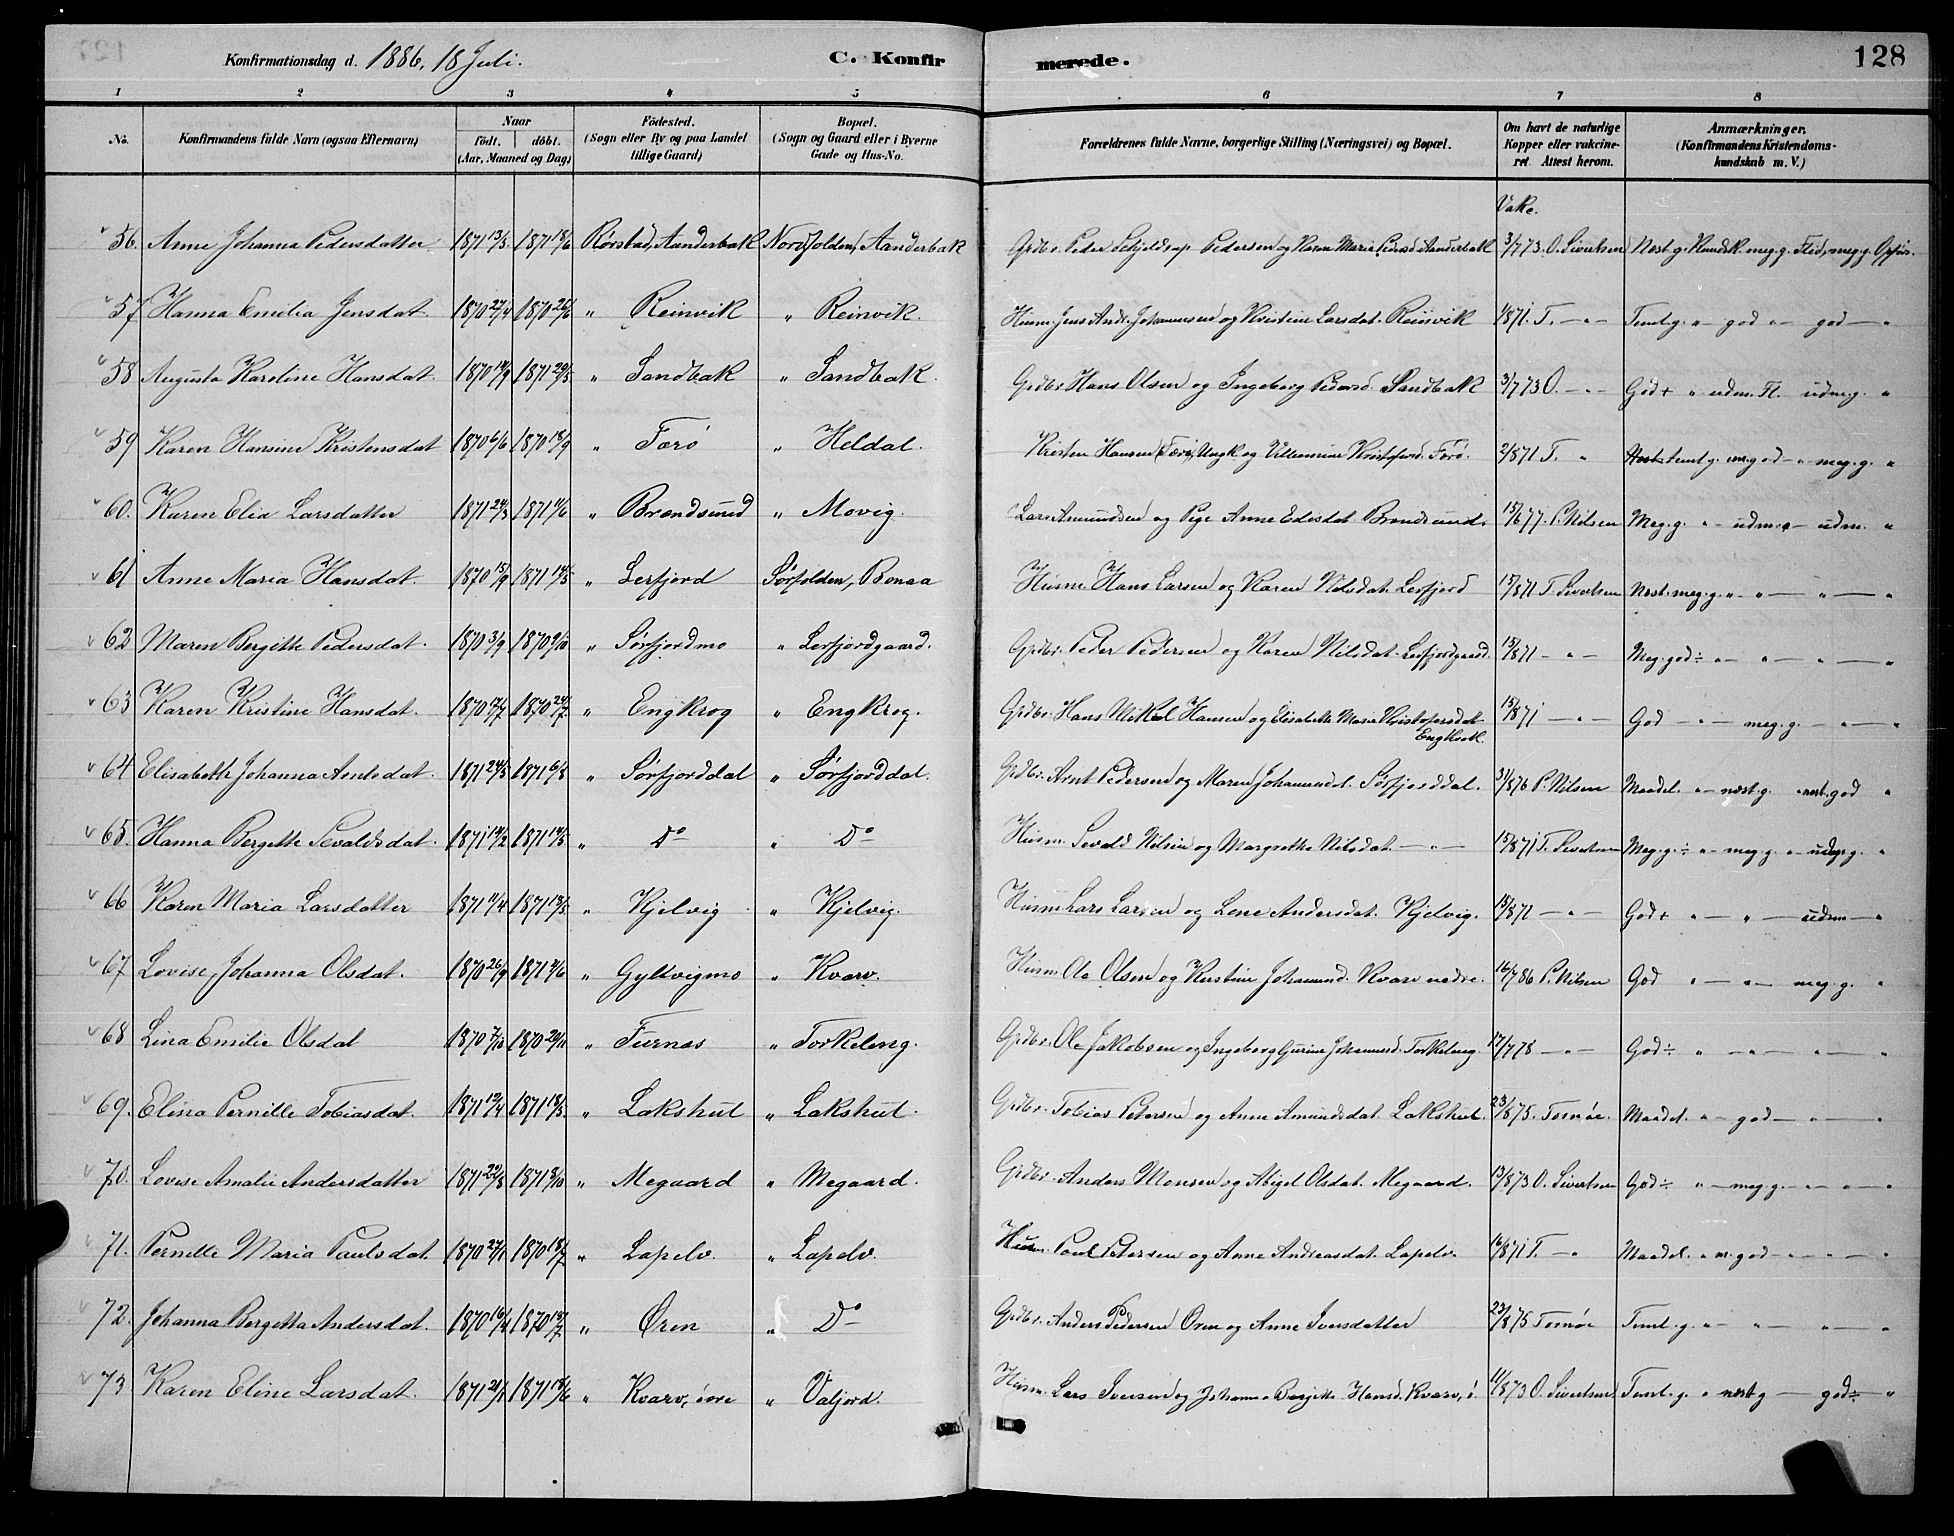 128
Konfirmationsdag d. 1886, 18 Juli. C. Konfirmerede.
1 2 3 4 5 6 7 8
No. Konfirmandens fulde Navn (ogsaa Efternavn) Naar født. døbt. (Aar, Maaned og Dag) Fødested. (Sogn eller By og paa Landet tillige Gaard) Bopæl. (Sogn og Gaard eller i Byerne Gade og Hus-No. Forældrenes fulde Navne, borgerlige Stilling (Næringsvei) og Bopæl. Om havt de naturlige Kopper eller vakcineret. Attest herom. Anmærkninger. (Konfirmandens Kristendomskundskab m. V.)
Vake.
56. Anne Johanna Pedersdatter 1871 13/3 1871 18/6 Rørstad, Aanderbak Nordfolden, Aanderbak Grdbr. Peder Schjeldrup Pedersen og Karen Maria Pedersd. Aanderbak 3/773 O. Sivertsen Næst. g. Kundsk. meg. g. Flid, meg. g. Opfør.
57 Hanna Emilia Jensdat. 1870 27/4 1870 26/6 " Reinvik " Reinvik. Husm. Jens Andr. Johannesen og Kristine Larsdat. Reinvik 1/871. T. - " - Temt. g. " - god " - god - "
58 Augusta Karoline Hansdat. 1870 14/9 1871 29/5 " Sandbak " Sandbak. Grdbr. Hans Olsen og Ingeborg Pedersd. Sandbak 3/773 O. - " - God + " udm. Fl. udm. g. "
59 Karen Hansine Kristensdat 1870 6/6 1870 18/9 " Forø " Heldal. Kristen Hansen Forø, Ungk. og Villumine Kristofersd. Forø. 2/871 T. " Temt. g. m. god - " meg. g. "
60. Karen Elia Larsdatter 1871 24/3 1871 11/6 " Brændsund " Movig. Lars Amundsen og Pige Anne Edisdat Brændsund. 15/677. P. Nilsen Meg. g. " - udm. " - udm. "
61 Anne Maria Hansdat. 1870 15/9 1871 14/5 " Lerfjord Sørfolden, Bonaa Husm. Hans Larsen og Karen Nilsdat. Lerfjord 15/871 T. Sivertsen Næst. meg. g. " - " - " - "
62 Maren Bergitte Pedersdat. 1870 3/9 1870 9/10 " Sørfjordmo " Lerfjordgaard. Grdbr. Peder Pedersen og Karen Nilsdat. Lerfjordgaard. 15/871 - " - Meg. god ÷ " - " - " - "
63 Karen Kristine Hansdat. 1870 17/7 1870 24/7 " Engkrog " Engkrog. Grdbr. Hans Mikal Hansen og Elisabeth Maria Kristofersdat Engkrok. 15/871 - " - God - " - meg. g. - " - "
64 Elisabeth Johanna Arntsdat. 1871 24/3 1871 6/8 " Sørfjorddal " Sørfjorddal. Grdbr. Arnt Pedersen og Maren Johannesdt. Sørfjorddal. 31/876 P. Nilsen Maadel. " - næst. g. næst. god "
65. Hanna Bergette Sevaldsdat. 1871 14/2 1871 14/5 " Do " Do Husm. Sevald Nilsen og Margrethe Nilsdat. - " - 15/871 T. Sivertsen Meg. g. ÷ " - meg. g. " udm. g. "
66 Karen Maria Larsdatter 1871 11/4 1871 13/5 " Kjelvig " Kjelvig. Husm. Lars Larsen og Lene Andersdat. Kjelvig. 15/871 - " - God + " - " - udm - "
67 Lovise Johanna Olsdat. 1870 26/9 1871 4/6 " Gyltvigmo " Kvarv. Husm. Ola Olsen og Kerstine Johannesd. Kvarv nedre. 16/786 P. Nilsen God " - " - meg. g. "
68 Lina Emilie Olsdat 1870 7/10 1870 20/11 " Furnæs " Torkeleng. Grdbr. Ole Jakobsen og Ingeborg Gurine Johannesd. Torkeleng 17/778 - " - God ÷ " - " - " - "
69. Elina Pernille Tobiasdat. 1871 12/4 1871 18/5 " Lakshul " Lakshul. Grdbr. Tobias Petersen og Anne Amundsdat. Lakshul. 23/875. Tornøe. Maadel. " - god - " - "
70. Lovise Amalie Andersdatter 1871 22/8 1871 8/10 " Megaard " Megaard. Grdbr. Anders Monsen og Abigel Olsdat. Megaard. 13/873 O. Sivertsen God ÷ " - meg. g. - " - "
71. Pernille Maria Paulsdat. 1870 27/1 1870 18/7 " Lapelv. " Lapelv. Husm. Paul Petersen og Anne Andreasdat. Lapelv. 16/871 T. - " Maadel. " m. god - " - "
72. Johanna Bergetta Andersdat. 1870 16/4 1870 18/7 " Øren " Do Grdbr. Anders Pedersen Øren og Anne Iversdatter 23/875 Tornøe Temt. g. " - " - " - "
73 Karen Eline Larsdat. 1871 21/1 1871 18/6 " Kvarv, øvre " Valjord. Husm. Lars Iversen og Johanna Bergitte Hansd. Kvarv, ø. 11/873 O. Sivertsen Temt. g. " næst. g - god ÷ "